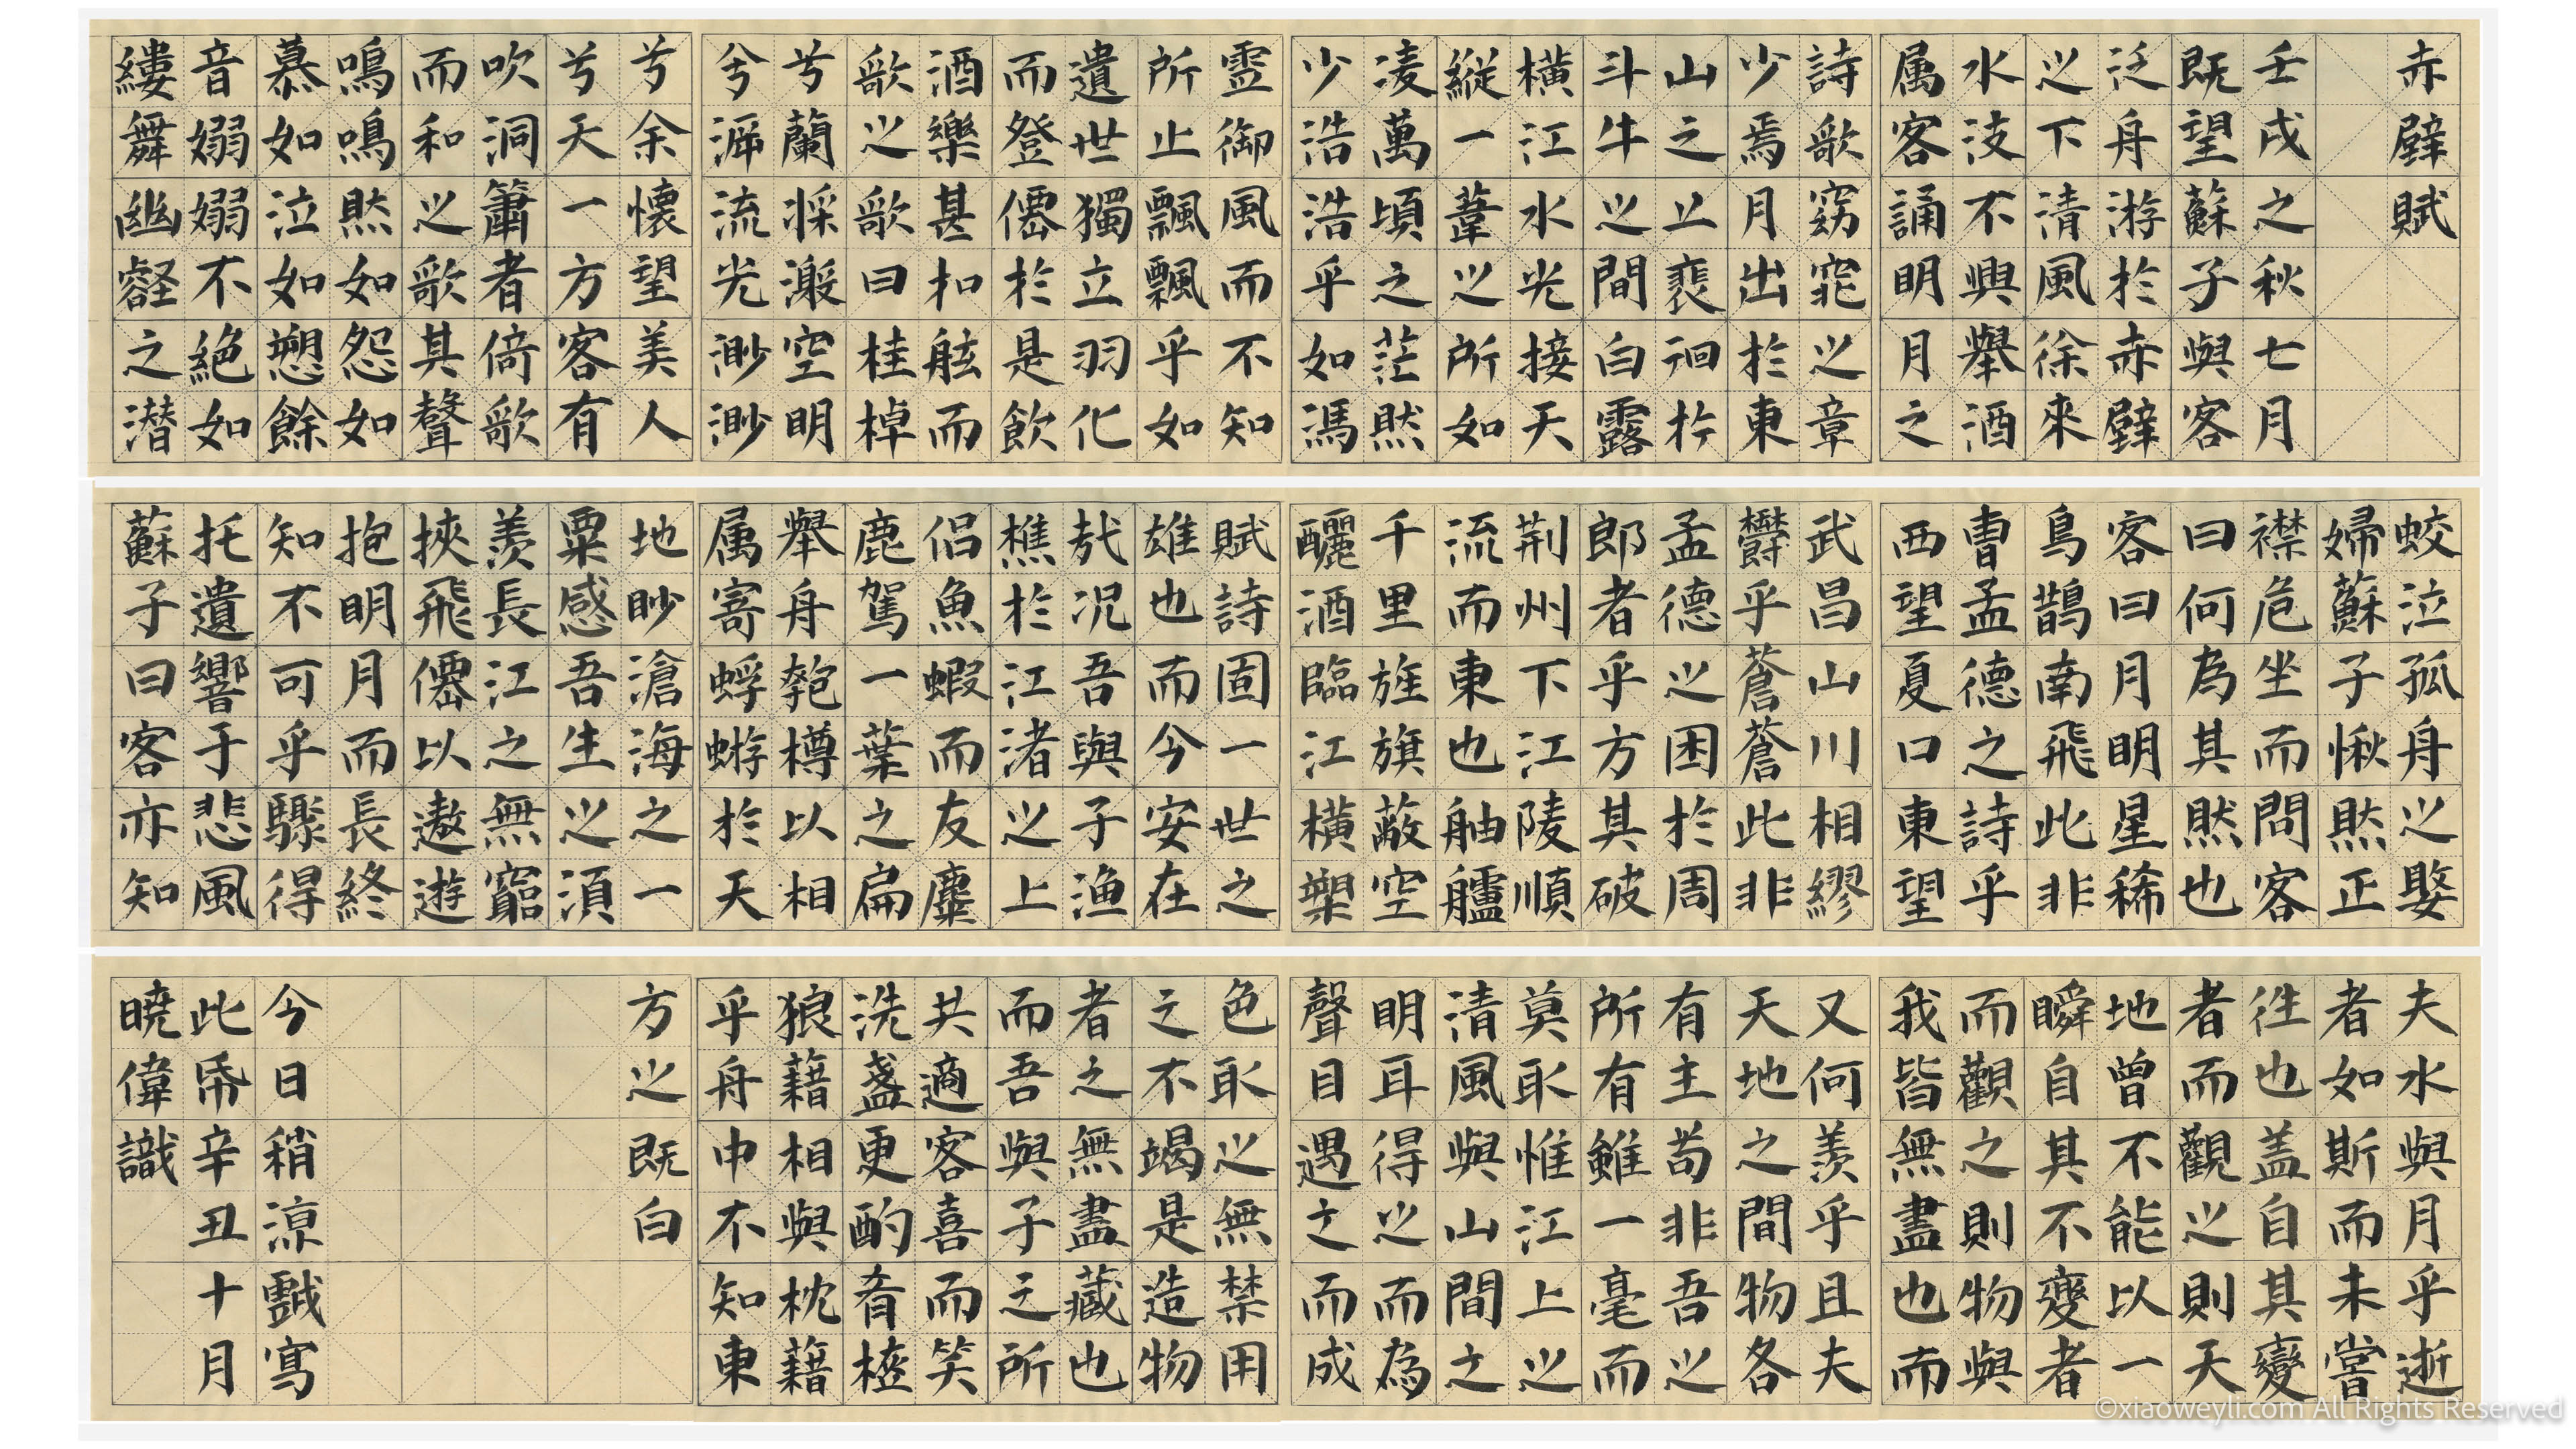 赤壁賦
壬戌之秋七月
既望蘇子與客
泛舟游於赤壁
之下清風徐來
水波不興舉酒
属客誦明月之
詩歌窈窕之章
少焉月出於東
山之上裴徊於
斗牛之間白露
橫江水光接天
縱一葦之所如
凌萬頃之茫然
少浩浩乎如馮
虚御風而不知
所止飄飄乎如
遺世獨立羽化
而登僊於是飲
酒樂甚扣舷而
歌之歌曰桂棹
兮蘭槳激空明
兮泝流光渺渺
兮余懷望美人
兮天一方客有
吹洞簫者倚歌
而和之歌其聲
鳴鳴然如怨如
慕如泣如愬餘
音嫋嫋不絕如
縷舞幽壑之潛
蛟泣孤舟之嫠
婦蘇子愀然正
襟危坐而問客
曰何為其然也
客曰月明星稀
烏鵲南飛此非
曹孟德之詩乎
西望夏口東望
武昌山川相繆
欝乎蒼蒼此非
孟德之困於周
郎者乎方其破
荆州下江陵順
流而東也舳艫
千里旌旗蔽空
釃酒臨江橫槊
賦詩固一世之
雄也而今安在
哉况吾與子渔
樵於江渚之上
侣魚蝦而友麋
鹿駕一葉之扁
舉舟匏樽以相
属寄蜉蝣於天
地眇滄海之一
粟感吾生之須
羨長江之無窮
挾飛僊以遨遊
抱明月而長終
知不可乎驟得
托遺響于悲風
蘇子曰客亦知
夫水與月乎逝
者如斯而未嘗
往也盖自其變
者而觀之則天
地曾不能以一
瞬自其不變者
而觀之則物與
我皆無盡也而
又何羨乎且夫
天地之間物各
有主苟非吾之
所有雖一毫而
莫取惟江上之
清風與山間之
明耳得之而為
聲目遇之而成
色取之無禁用
之不竭是造物
者之無盡藏也
而吾與子之所
共適客喜而笑
洗盞更酌肴核
狼藉相與枕藉
乎舟中不知東
方之既白
今日稍凉戲寫
此帋辛丑十月
曉偉識
©xiaoweyli.com All Rights Reserved